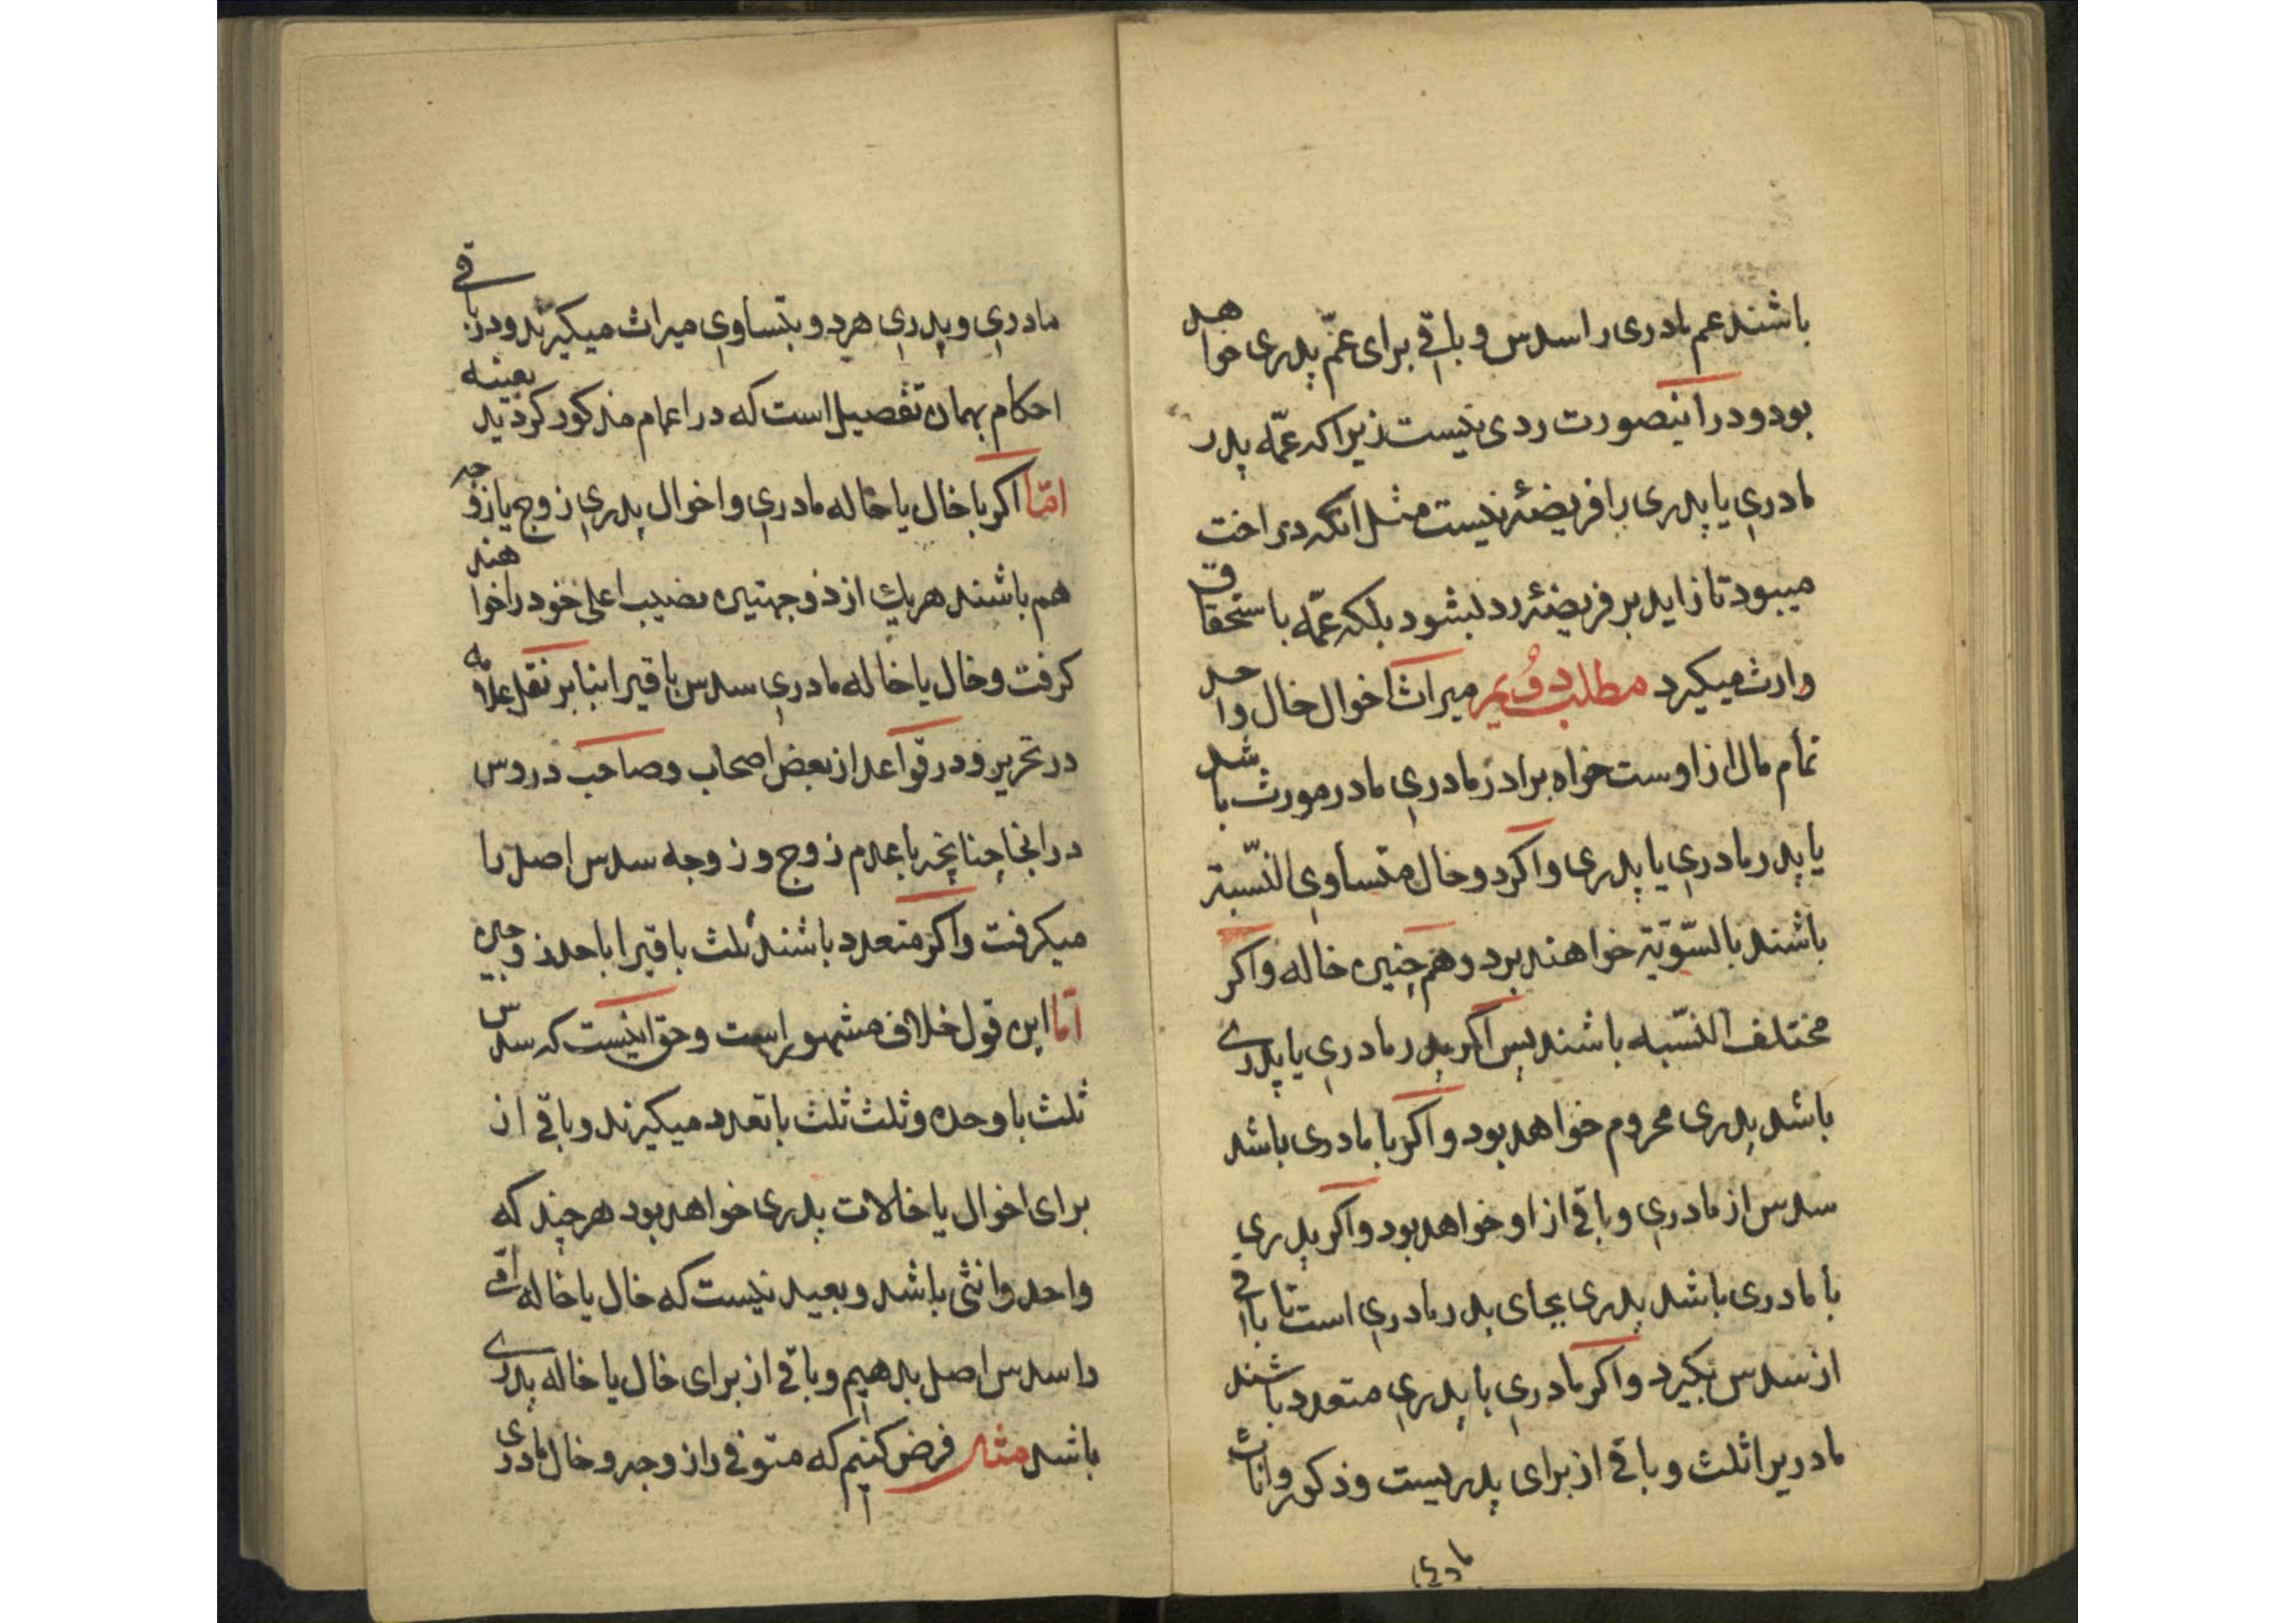 باشند عم مادری را سدس و باقی برای عمّ پدری خواهد
بود و در اینصورت ردی نیست زیرا که عمّه پدر
مادری یا پدری را فریضهٔ نیست مثل آنکه در اخت
میبود تا زاید بر فریضهٔ رد بشود بلکه عمّه باستحقاق
وارث میگیرد مطلب دویم میراث اخوال خال واحد
تمام مال از اوست خواه برادر مادری مادر مورث باشد
یا پدر مادری یا پدری و اگر دو خال متساوی النّسبة
باشند بالسّویّة خواهند برد و هم چنین خاله و اگر
مختلف النّسبه باشند پس اگر پدر مادری یا پدری
باشد پدری محروم خواهد بود و اگر با مادری باشد
سدس از مادری و باقی از او خواهد بود و اگر پدری
با مادری باشد پدری بجای پدر مادری است تا باقی
از سدس بگیرد و اگر مادری با پدری متعدد باشند
مادریرا ثلث و باقی از برای پدریست و ذکور و اناث
مادری
مادری و پدری هر دو بتساوی میراث میگیرند و در باقی
احکام بهمان تفصیل است که در اعمام مذکور گردید بعینه
امّا اگر با خال یا خاله مادری و اخوال پدری زوج یا زوجه
هم باشند هر یک از زوجین نصیب اعلی خود را خواهند
گرفت و خال یا خاله مادری سدس باقیرا بنا بر نقل علامه
در تحریر و در قواعد از بعض اصحاب و صاحب دروس
در انجا چنانچه با عدم زوج و زوجه سدس اصل را
میگرفت و اگر متعدد باشند ثلث باقیرا با احد زوجین
امّا این قول خلاف مشهور است و حق اینست که سدس
ثلث با وحده و ثلث ثلث با تعدد میگیرند و باقی از
برای اخوال یا خالات پدری خواهد بود هر چند که
واحد و انثی باشد و بعید نیست که خال یا خاله امّی
را سدس اصل بدهیم و باقی از برای خال یا خاله پدری
باشد مثلا فرض کنیم که متوفی را زوجه و خال مادری